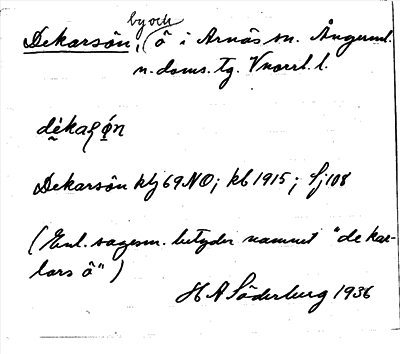 by och
Dekarsön, ö i Arnäs sn. Ångerml.
n. doms. tg. Vnorrl. l.
Dekarsön klj 69 NO; kb 1915; Sj 108
(Enl. sagesm. betyder namnet "de kar-
lars ö")
H A Söderberg 1936